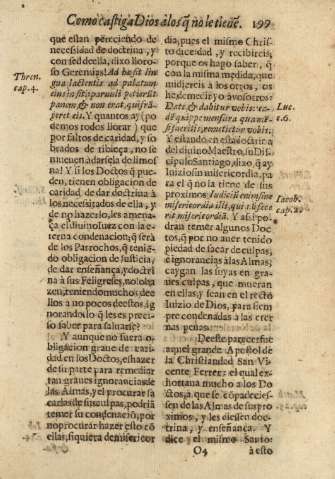 Como castiga Dios à los q̃ no le tienẽ. 199
que estan pereciendo de
necessidad de doctrina, y
con sed de ella, dixo lloro-
so Geremias! Adhæsit lin-
gua lactentis ad palatum
eius in siti: parvuli petierũt
panem, & non erat, qui frã-
geret eis. Y quantos ay (po-
demos todos llorar) que
por faltos de caridad, y so-
brados de tibieza, no se
mueuen à darsela de limos-
na! Y si los Doctos q̃ pue-
den, tienen obligacion de
caridad, de dar doctrina à
los necessitados de ella, y
de no hazerlo, les amena-
ça el diuino Iuez con la e-
terna condenacion; q̃ será
de los Parrochos, q̃ tenié-
do obligacion de Iusticia,
de dar enseñança, y doctri-
na à sus Feligreses, no lo ha-
zen, teniendo muchos de e-
llos à no pocos de estos, ig-
norando lo q̃ les es preci-
so saber para saluarse?
Y aunque no fuera o-
bligacion graue de cari-
dad en los Doctos, el hazer
de su parte para remediar
tan graues ignorancias de
las Almas, y el procurar sa-
carlas de su culpa, podriã
temer su condenaciõ, por
no procurar hazer esto cõ
ellas, siquiera de misericor
dia, pues el mismo Chris-
to dice: dad, y recibireis,
porque os hago saber, q̃
con la misma medida, que
midiereis à los otros, os
he de medir yo à vosotros:
Date, & dabitur vobis: ea-
dẽ quippe mensura qua mẽ-
si fueritis, remetietur vobis.
Y estando en esta doctrina
del diuino Maestro, su Dis-
cipulo Santiago, dizo, q̃ ay
Iuizio sin misericordia, pa-
ra el q̃ no la tiene de sus
proximos: Iudiciũ enim sine
misericordia illi, qui nõ fece
rit misericordiã. Y assi po-
dran temer algunos Doc-
tos, q̃ por no auer tenido
piedad de sacar de culpas,
de ignorancias à las Almas,
caygan las suyas en gra-
ues culpas, que mueran
en ellas, y sean en el recto
Iuizio de Dios, para siem
pre condenadas à las eter
nas penas.
De este parecer fue
aquel grande Apostol de
la Christiandad San Vi-
cente Ferrer: el qual ex-
hortaua mucho à los Do
ctos, à que se cõpadecies-
sen de las Almas de sus pro
ximos, y les diessen doc-
trina, y enseñança. Y
dize el mismo Santo:
O4 à esto
Thren.
cap. 4.
Luc.
c. 6.
Iacob.
cap. 2.